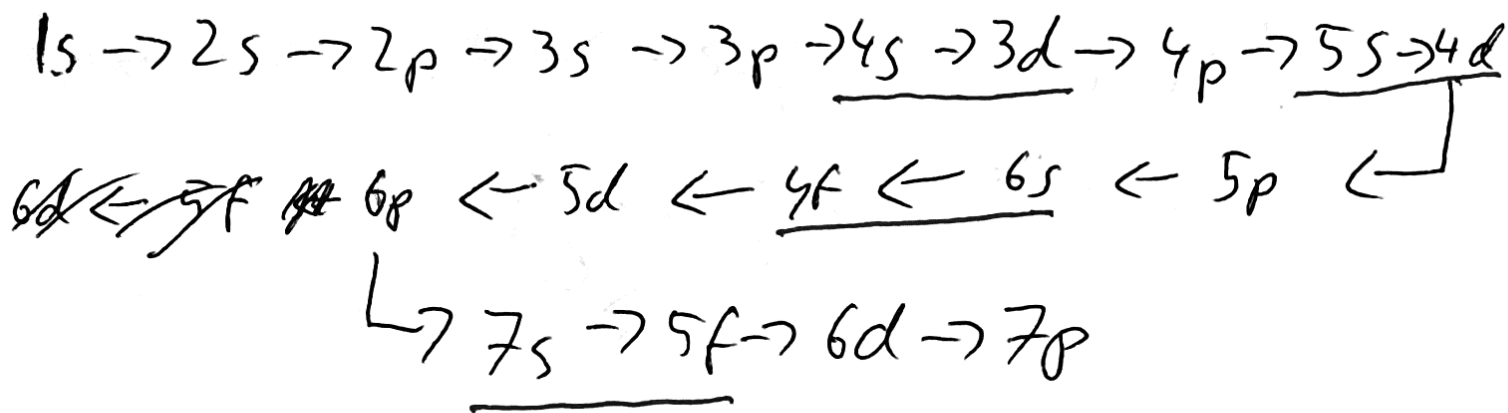 1s → 2s → 2p → 3s → 3p → 4s → 3d → 4p → 5s → 4d
6d ← 5f 6p ← 5d ← 4f ← 6s ← 5p ←
↳ 7s → 5f → 6d → 7p